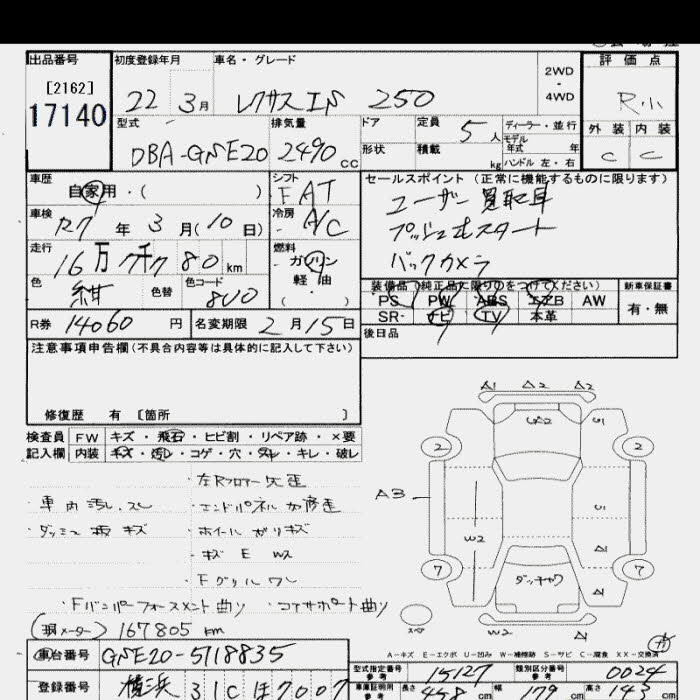 出品番号 初度登録年月 車名・グレード 評価点
[2162] 2WD・4WD
17140 22 3月 レクサスIS 250 R小
型式 排気量 ドア 定員 5人 ディーラー・並行 外装 内装
形状 積載 kg モデル年式 年
DBA-GSE20 2490cc ハンドル 左・右 C C
車歴 シフト セールスポイント(正常に機能するものに限ります)
自家用・( ) FAT ユーザー買取車
車検 R7年3月(10日) 冷房 A/C プッシュ式スタート
走行 燃料 バックカメラ
16万 7千 80km ガソリン
色 紺 色替 色コード 8U0 軽油 ( ・ )
装備品(純正品に限り○をつけてください) 新車保証書
PS PW ABS エアB AW 有・無
SR ナビ TV 本革
R券 14060円 名変期限 2月15日 後日品
注意事項申告欄(不具合内容等は具体的に記入して下さい)
修復歴 有 [箇所 ]
検査員 FW キズ・飛石・ヒビ割・リペア跡・×要
記入欄 内装 キズ・汚れ・コゲ・穴・スレ・キレ・破レ
・車内汚れ、スレ
・ダッシュ板キズ
・左Rフロアー欠歪
・エンドパネル加修歪
・ホイールガリキズ
・キズ E W2
・Fグリルワレ
・Fバンパーフォースメント曲り ・コアサポート曲り
(現メーター) 167805 km
A1 A2 A2
2 2
A3
W2
A1
A1
7 7
スペア
W2 A1
A-キズ E-エクボ U-凹み W-補修跡 S-サビ C-腐食 XX-交換済
車台番号 GSE20-5118835
登録番号 横浜 310 ほ 7007
型式指定番号 参考 15127 類別区分番号 参考 0024
車庫証明用 参考 長さ 458cm 幅 179cm 高さ 143cm